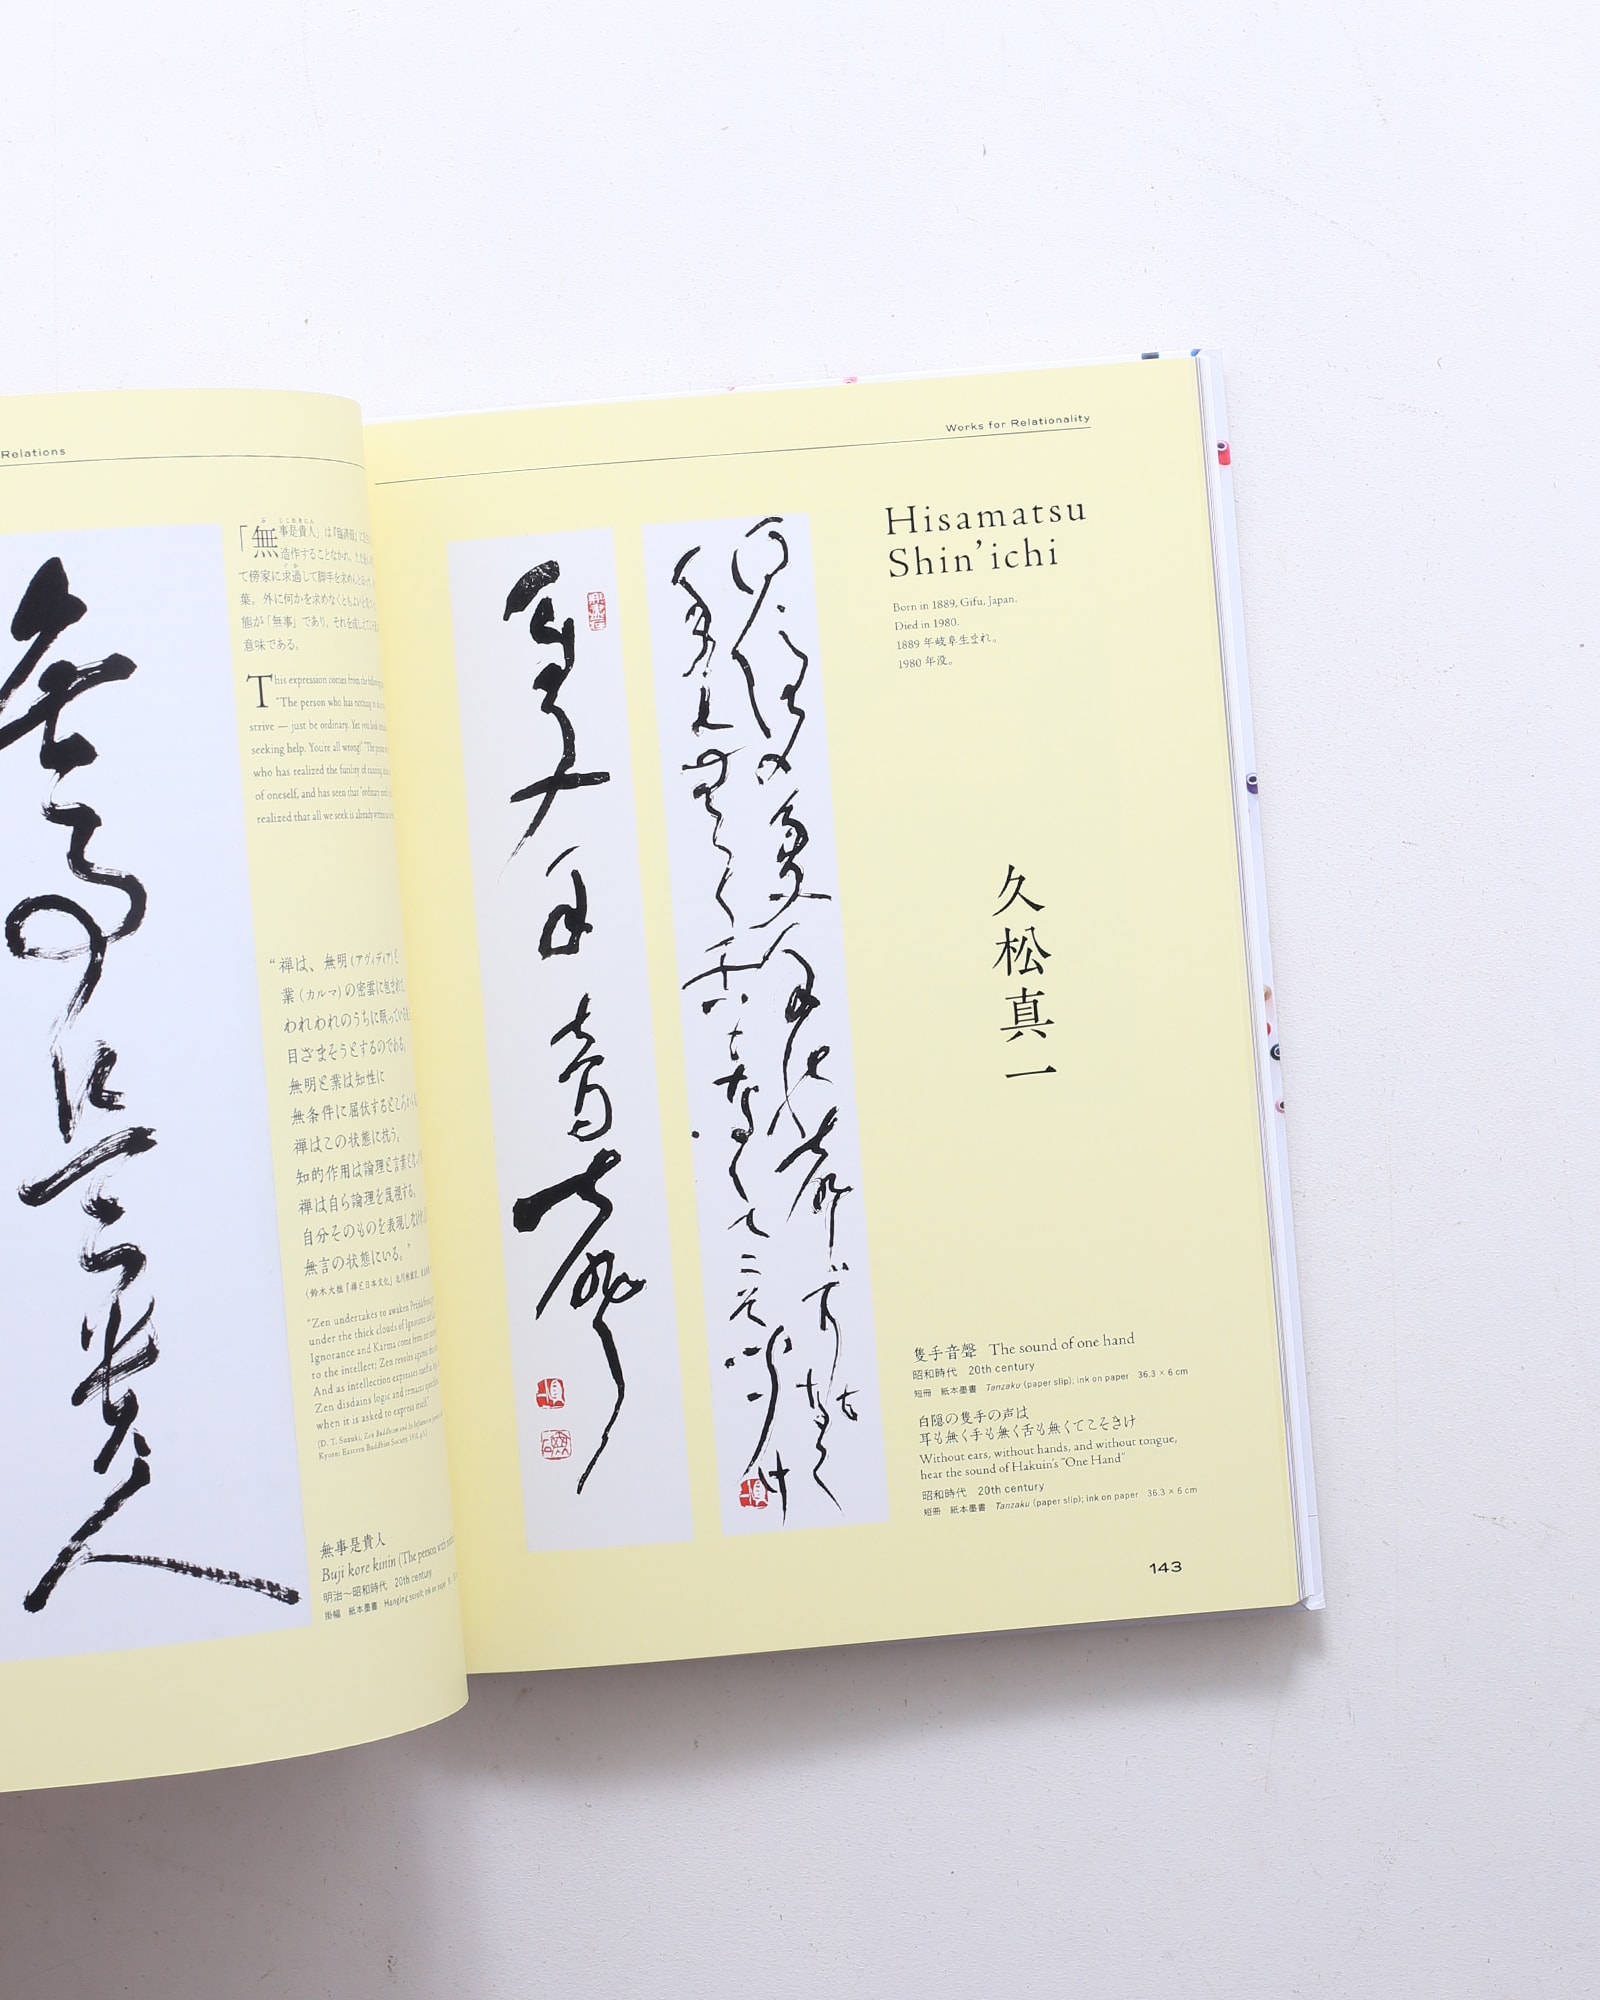 Relations
「無事是貴人」は『臨済録』
造作することなかれ、
て傍家に求過して脚手を求めんと
葉。外に何かを求めなくともよい
態が「無事」であり、それを成し
意味である。
This expression comes from the following
"The person who has nothing to
strive — just be ordinary. Yet you look
seeking help. You're all wrong!" "The
who has realized the futility of running
of oneself, and has seen that "ordinary
realized that all we seek is already within
“禅は、無明(アヴィディア)と
業(カルマ)の密雲に包まれて、
われわれのうちに眠っている
目ざまそうとするのである。
無明と業は知性に
無条件に屈伏するところから
禅はこの状態に抗う。
知的作用は論理と言葉と
禅は自ら論理を蔑視する。
自分そのものを表現しなければ
無言の状態にいる。”
(鈴木大拙『禅と日本文化』
"Zen undertakes to awaken Prajñā
under the thick clouds of Ignorance
Ignorance and Karma come from our
to the intellect; Zen revolts against
And as intellection expresses itself
Zen disdains logic and remains
when it is asked to express itself."
(D. T. Suzuki, Zen Buddhism and Its Influence on
Kyoto: Eastern Buddhist Society, 1938, p.5)
無事是貴人
Buji kore kinin (The person with
明治〜昭和時代 20th century
掛幅 紙本墨書 Hanging scroll; ink on paper
無事是貴人
Works for Relationality
Hisamatsu
Shin’ichi
Born in 1889, Gifu, Japan.
Died in 1980.
1889 年岐阜生まれ。
1980 年没。
久松真一
隻手音聲
白隠の隻手の声は
耳も無く手も無く舌も無くてこそきけ
隻手音聲 The sound of one hand
昭和時代 20th century
短冊 紙本墨書 Tanzaku (paper slip); ink on paper 36.3 × 6 cm
白隠の隻手の声は
耳も無く手も無く舌も無くてこそきけ
Without ears, without hands, and without tongue,
hear the sound of Hakuin's "One Hand"
昭和時代 20th century
短冊 紙本墨書 Tanzaku (paper slip); ink on paper 36.3 × 6 cm
143